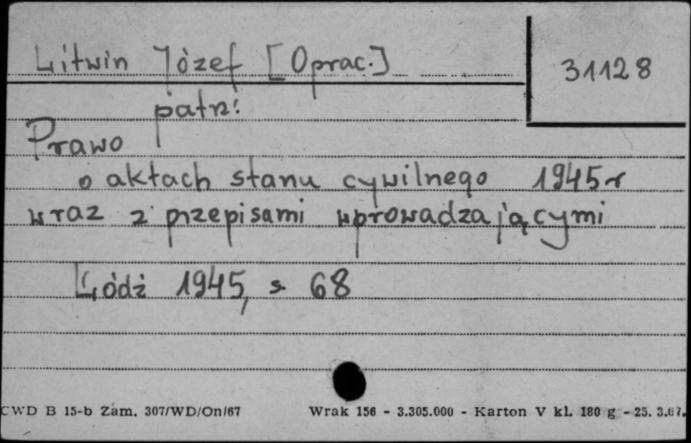 Litwin Józef [Oprac.]
31128
patrz:
Prawo
o aktach stanu cywilnego 1945 r
wraz z przepisami wprowadzającymi
Łódź 1945, s. 68
CWD B 15-b Zam. 307/WD/On/67 Wrak 156 - 3.305.000 - Karton V kl. 180 g - 25. 3.67.